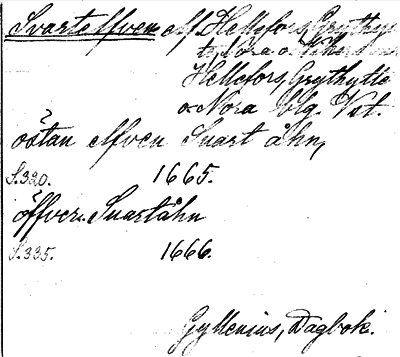 Svartelfven elf Hellefors, Grythytte
Nora o.
Hellefors, Grythytte
o Nora blg. Vst.
östan elfven Suart åhn,
S. 320. 1665.
öffver Suartåhn
S. 335. 1666.
Gyllenius, Dagbok.